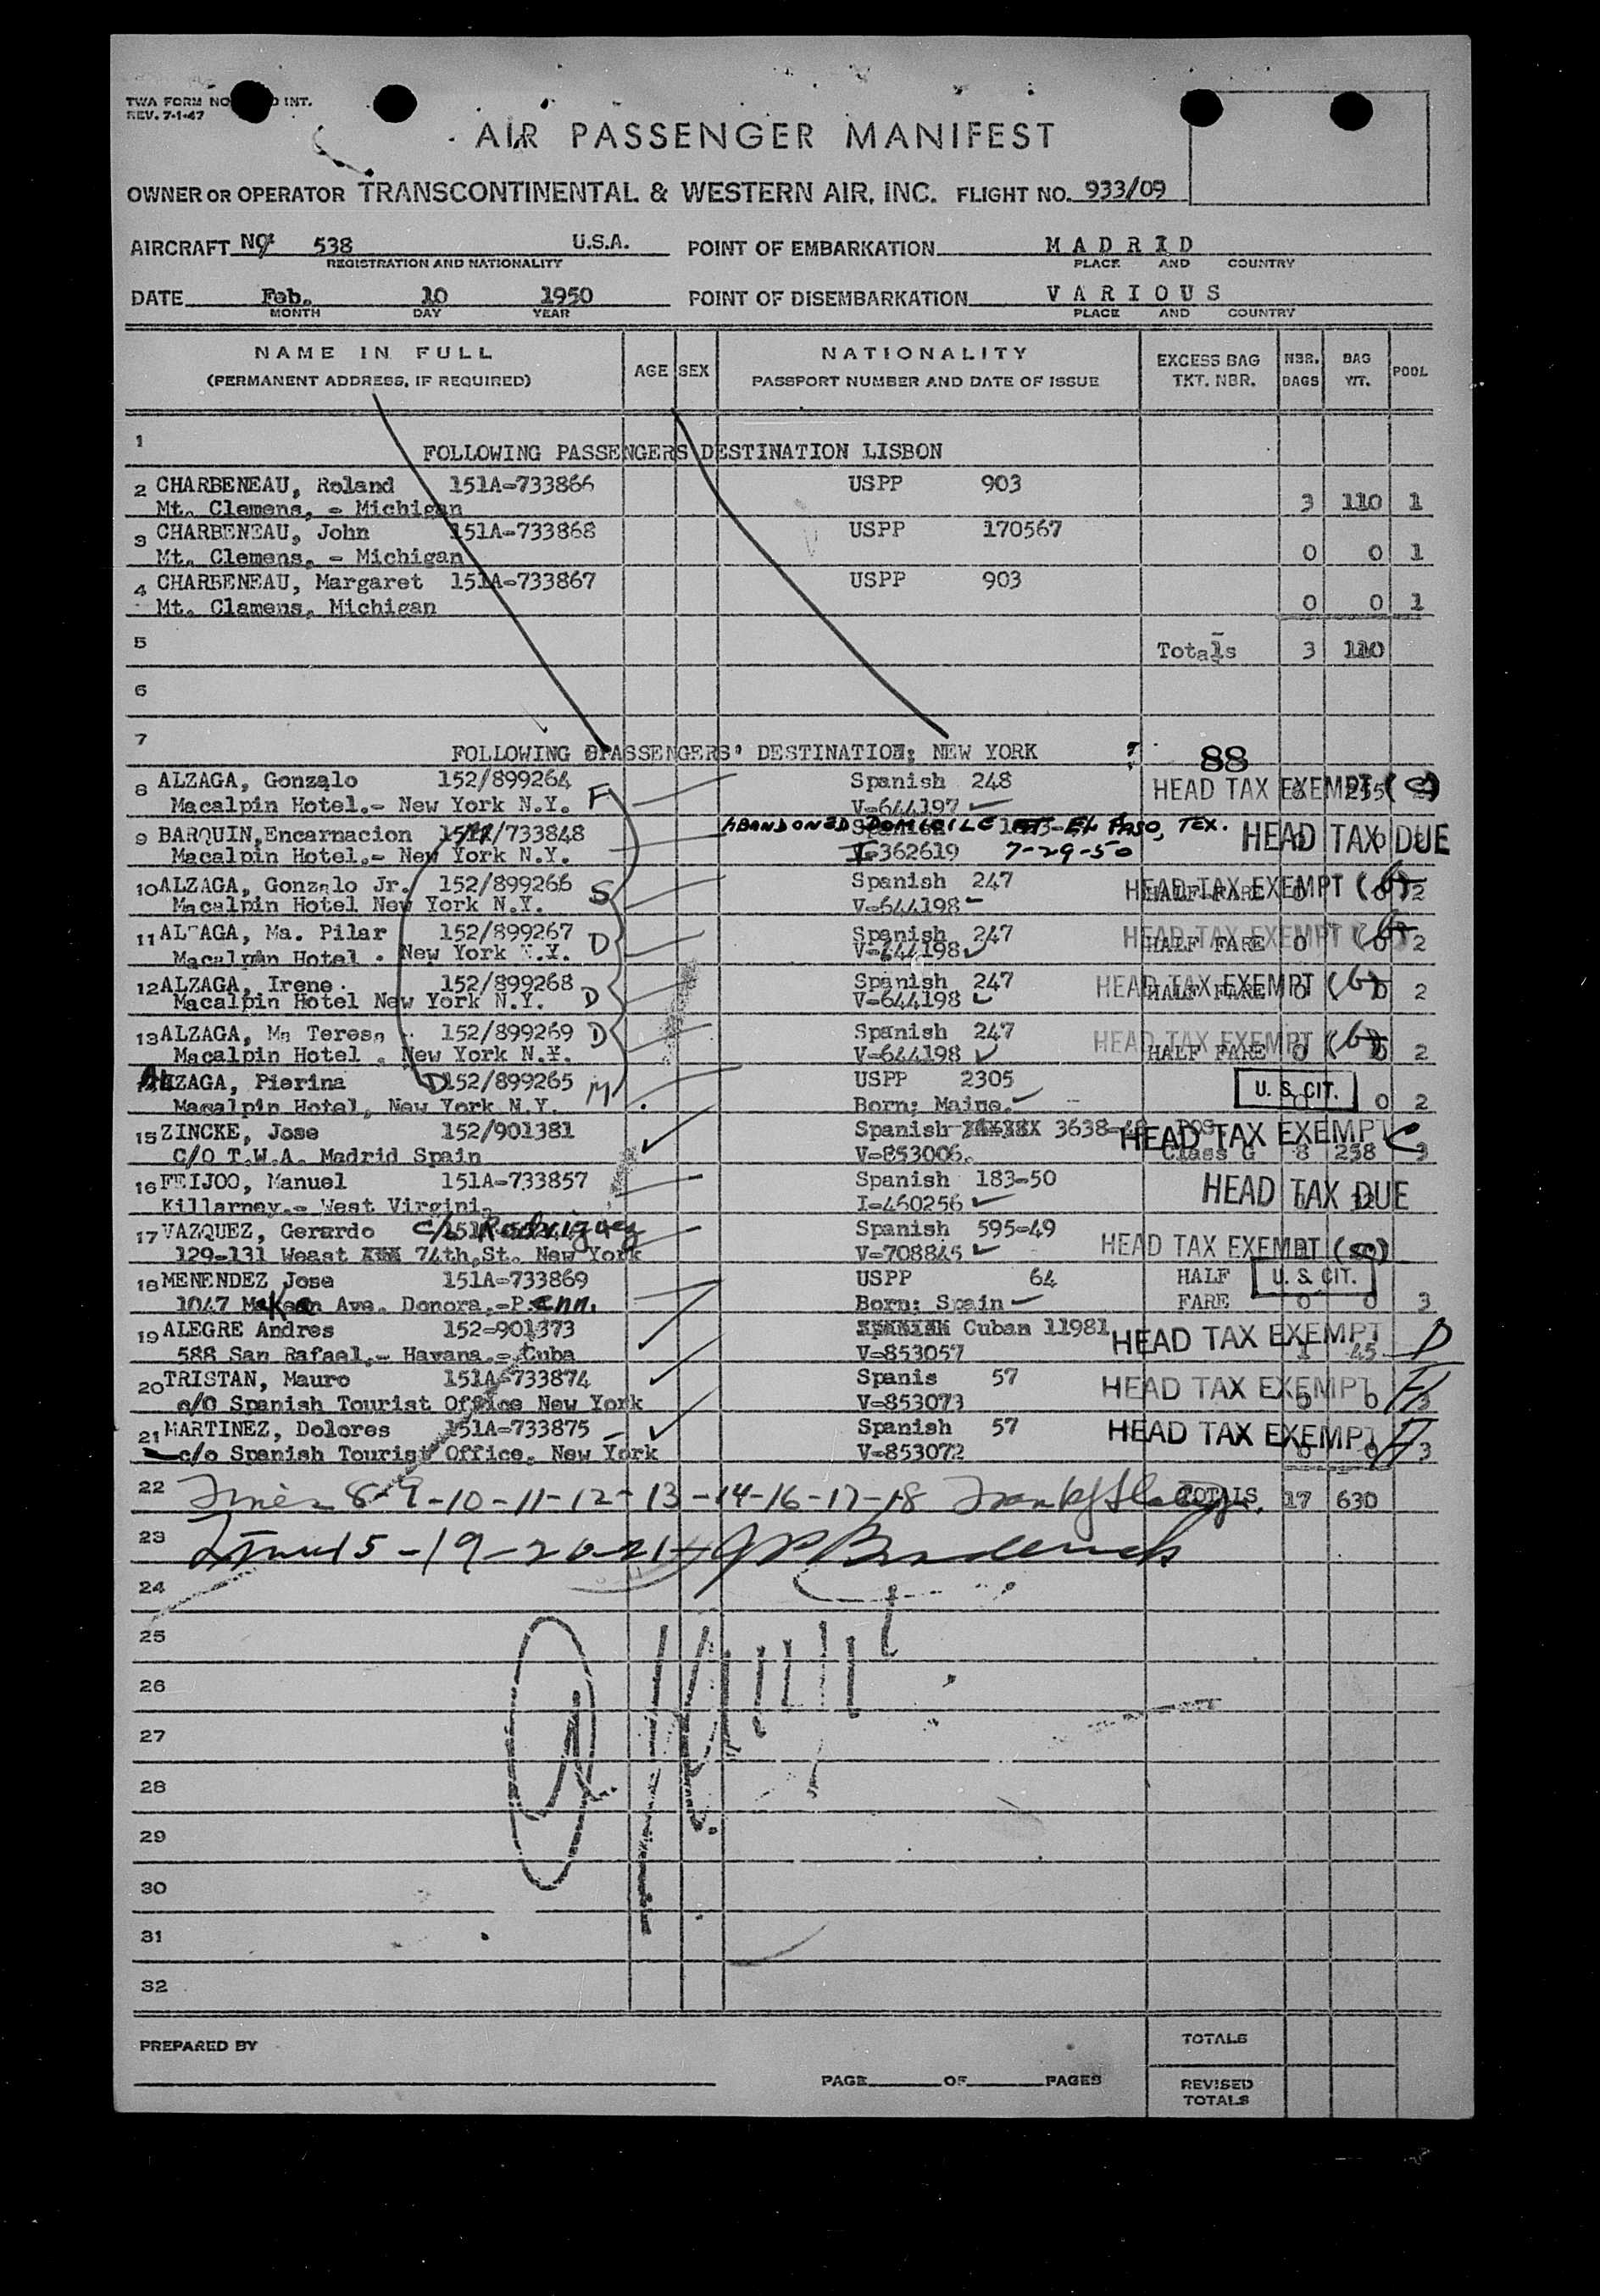 TWA FORM NO. INT.
REV. 7-1-47
AIR PASSENGER MANIFEST
OWNER OR OPERATOR TRANSCONTINENTAL & WESTERN AIR, INC. FLIGHT NO. 933/09
AIRCRAFT 538 U.S.A. POINT OF EMBARKATION M A D R I D
REGISTRATION AND NATIONALITY PLACE AND COUNTRY
DATE Feb. 10 1950 POINT OF DISEMBARKATION V A R I O U S
MONTH DAY YEAR PLACE AND COUNTRY
NAME IN FULL AGE SEX NATIONALITY EXCESS BAG NBR. BAG POOL
(PERMANENT ADDRESS, IF REQUIRED) PASSPORT NUMBER AND DATE OF ISSUE TKT. NBR. BAGS WT.
1 FOLLOWING PASSENGERS DESTINATION LISBON
2 CHARBENEAU, Roland 151A-733866 USPP 903
Mt. Clemens, - Michigan 3 110 1
3 CHARBENEAU, John 151A-733868 USPP 170567
Mt. Clemens. - Michigan 0 0 1
4 CHARBENEAU, Margaret 151A-733867 USPP 903
Mt. Clamens, Michigan 0 0 1
5 Totals 3 110
6
7 FOLLOWING PASSENGERS' DESTINATION; NEW YORK ? 88
8 ALZAGA, Gonzalo 152/899264 F Spanish 248 HEAD TAX EXEMPT (C)
Macalpin Hotel.- New York N.Y. V-644197
9 BARQUIN,Encarnacion /733848 ABANDONED DOMICILE AT EL PASO, TEX. HEAD TAX DUE
Macalpin Hotel.- New York N.Y. I-362619 7-29-50
10 ALZAGA, Gonzalo Jr. 152/899266 S Spanish 247 HEAD TAX EXEMPT (b) HALF FARE 0 0 2
Macalpin Hotel New York N.Y. V-644198
11 ALZAGA, Ma. Pilar 152/899267 D Spanish 247 HEAD TAX EXEMPT (b) HALF FARE 0 0 2
Macalpin Hotel . New York N.Y. V-644198
12 ALZAGA, Irene. 152/899268 D Spanish 247 HEAD TAX EXEMPT (b) HALF FARE 0 0 2
Macalpin Hotel New York N.Y. V-644198
13 ALZAGA, Ma Teresa 152/899269 D Spanish 247 HEAD TAX EXEMPT (b) HALF FARE 0 0 2
Macalpin Hotel . New York N.Y. V-644198
ALZAGA, Pierina D 152/899265 M USPP 2305 U. S. CIT.
Macalpin Hotel, New York N.Y. Born; Maine. 0 2
15 ZINCKE, Jose 152/901381 Spanish 3638-4 HEAD TAX EXEMPT C
C/O T.W.A. Madrid Spain V-853006. Class G 8 258 3
16 FEIJOO, Manuel 151A-733857 Spanish 183-50 HEAD TAX DUE
Killarney.- West Virgini I-460256
17 VAZQUEZ, Gerardo c/o Rodriguez Spanish 595-49 HEAD TAX EXEMPT
129-131 Weast 74th,St. New York V-708845
18 MENENDEZ Jose 151A-733869 USPP 64 HALF U. S. CIT.
1047 McKean Ave. Donora,-Penn. Born; Spain FARE 0 0 3
19 ALEGRE Andres 152-901373 Cuban 11981 HEAD TAX EXEMPT D
588 San Rafael,- Havana.- Cuba V-853057 1 45
20 TRISTAN, Mauro 151A-733874 Spanis 57 HEAD TAX EXEMPT
c/O Spanish Tourist Office New York V-853073 0 0 3
21 MARTINEZ, Dolores 151A-733875 Spanish 57 HEAD TAX EXEMPT
c/o Spanish Tourist Office, New York V-853072 0 0 3
22 Lines 8-9-10-11-12-13-14-16-17-18 TOTALS 17 630
23 Lines 15-19-20-21
24
25
26
27
28
29
30
31
32
PREPARED BY TOTALS
PAGE OF PAGES REVISED
TOTALS